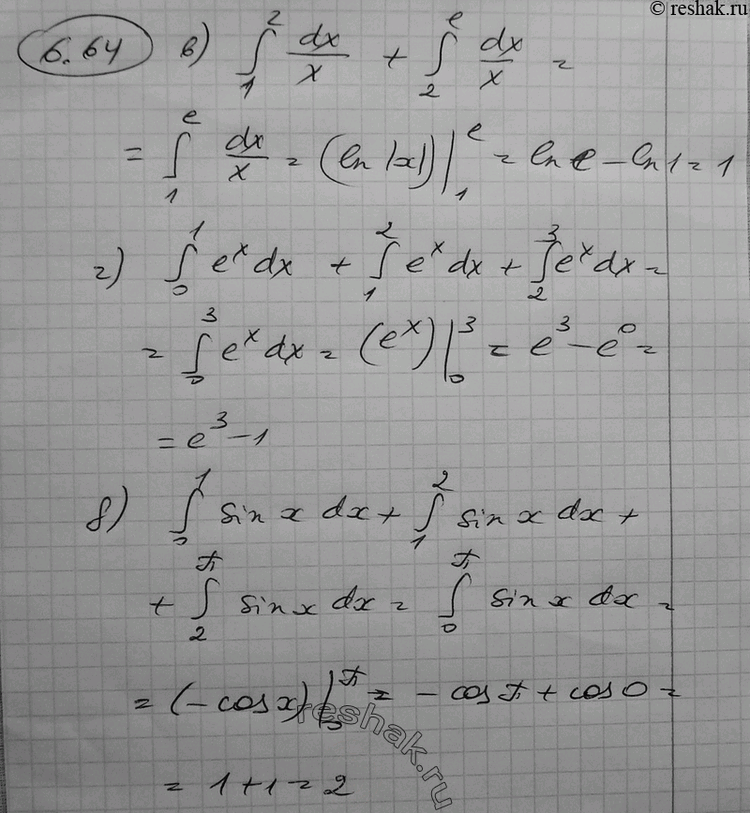 © reshak.ru
6.64 в) ∫₁² dx/x + ∫₂ᵉ dx/x =
= ∫₁ᵉ dx/x = (ln |x|)|₁ᵉ = ln e - ln 1 = 1
г) ∫₀¹ eˣ dx + ∫₁² eˣ dx + ∫₂³ eˣ dx =
= ∫₀³ eˣ dx = (eˣ)|₀³ = e³ - e⁰ =
= e³ - 1
д) ∫₀¹ sin x dx + ∫₁² sin x dx +
+ ∫₂^π sin x dx = ∫₀^π sin x dx =
= (-cos x)|₀^π = - cos π + cos 0 =
reshak.ru
= 1 + 1 = 2